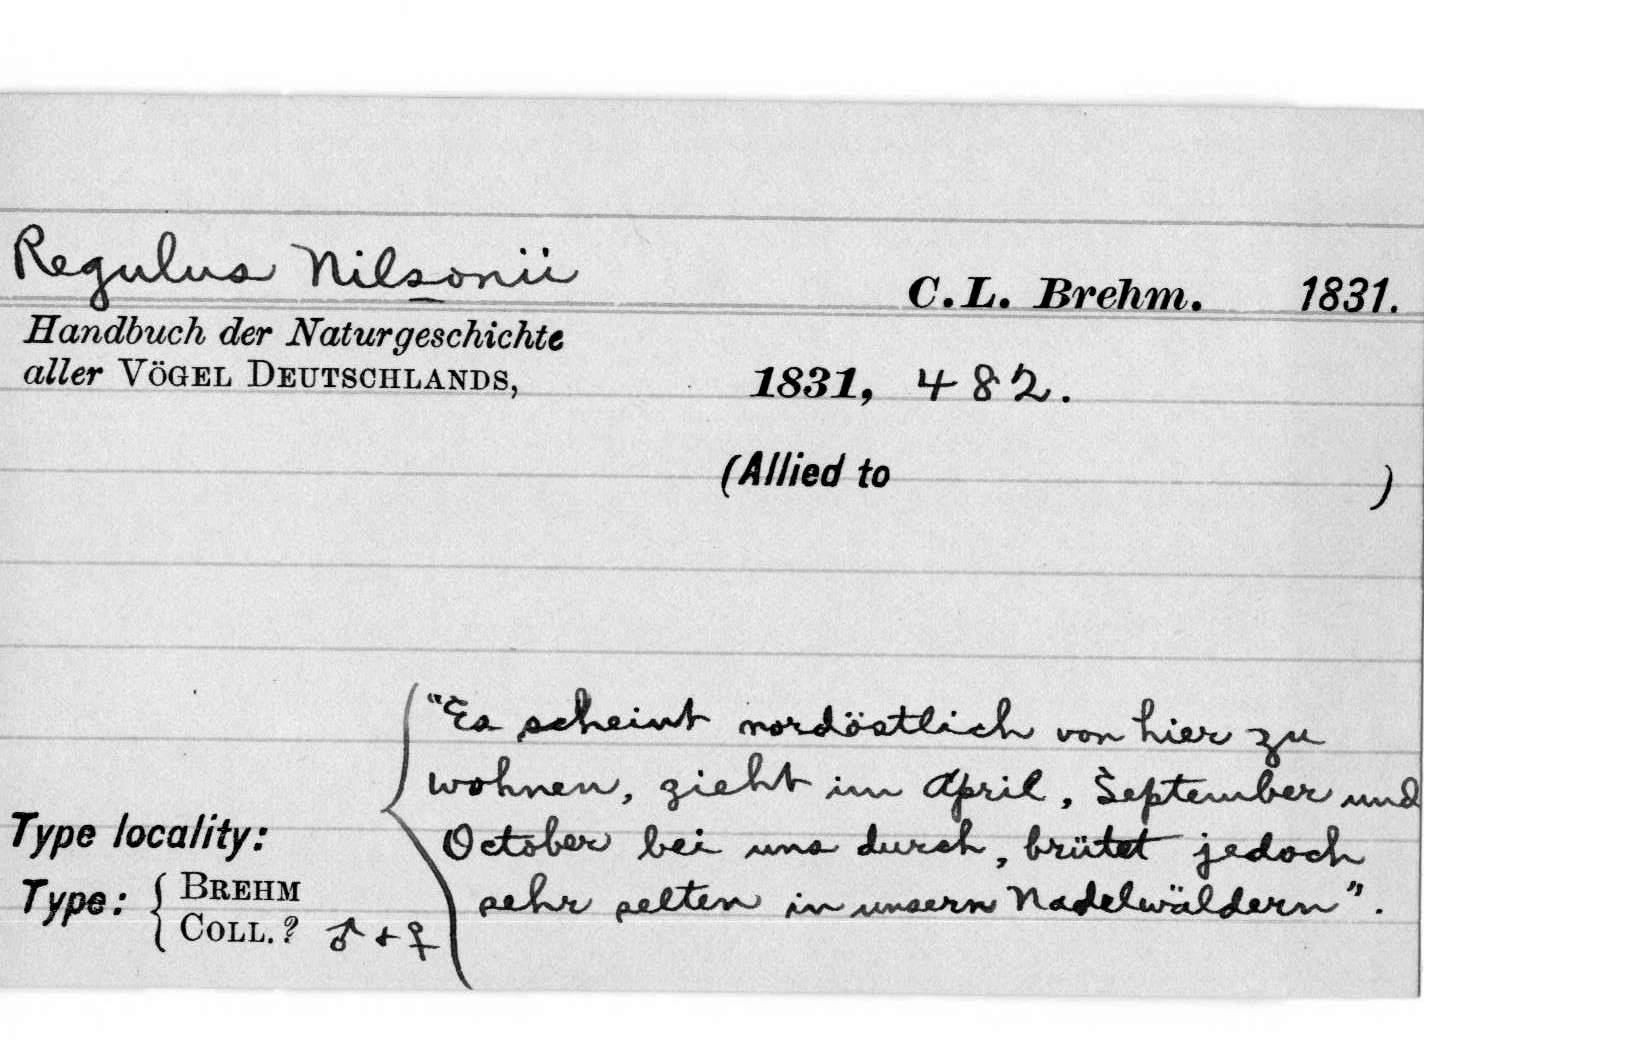 Regulus Nilsonii C. L. Brehm. 1831.
Handbuch der Naturgeschichte
aller VÖGEL DEUTSCHLANDS, 1831, 482.
(Allied to )
"Es scheint nordöstlich von hier zu
wohnen, zieht im April, September und
Type locality: October bei uns durch, brütet jedoch
Type: { BREHM sehr selten in unsern Nadelwäldern".
COLL.? ♂ + ♀